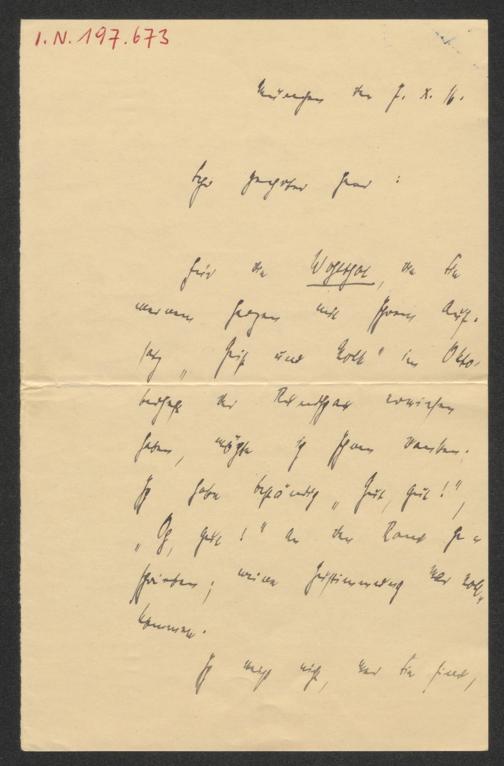 I.N. 197.673
München den 7. X. 16.
Sehr geehrter Herr :
Für die Wohlthat, die Sie
meinem Herzen mit Ihrem Auf-
satz „Geist und Volk" im Okto-
berheft der Rundschau erwiesen
haben, möchte ich Ihnen danken.
Ich habe beständig „Gut, gut!",
„Oh, gut!" an den Rand ge-
schrieben; meine Zustimmung war voll-
kommen.
Ich weiss nicht, wer Sie sind,